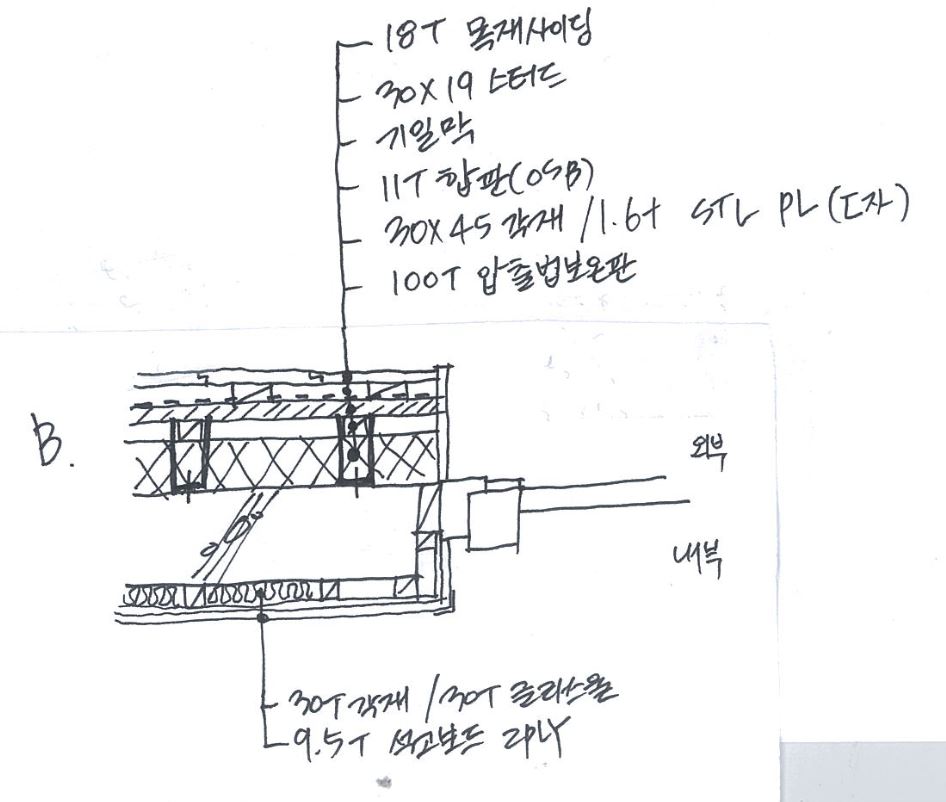 18T 목재사이딩
30X19 스터드
기밀막
11T 합판(OSB)
30X45 각재 /1.6t STL PL(ㄷ자)
100T 압출법보온판
B.
외부
내부
30T 각재 /30T 글라스울
9.5T 석고보드 2PLY